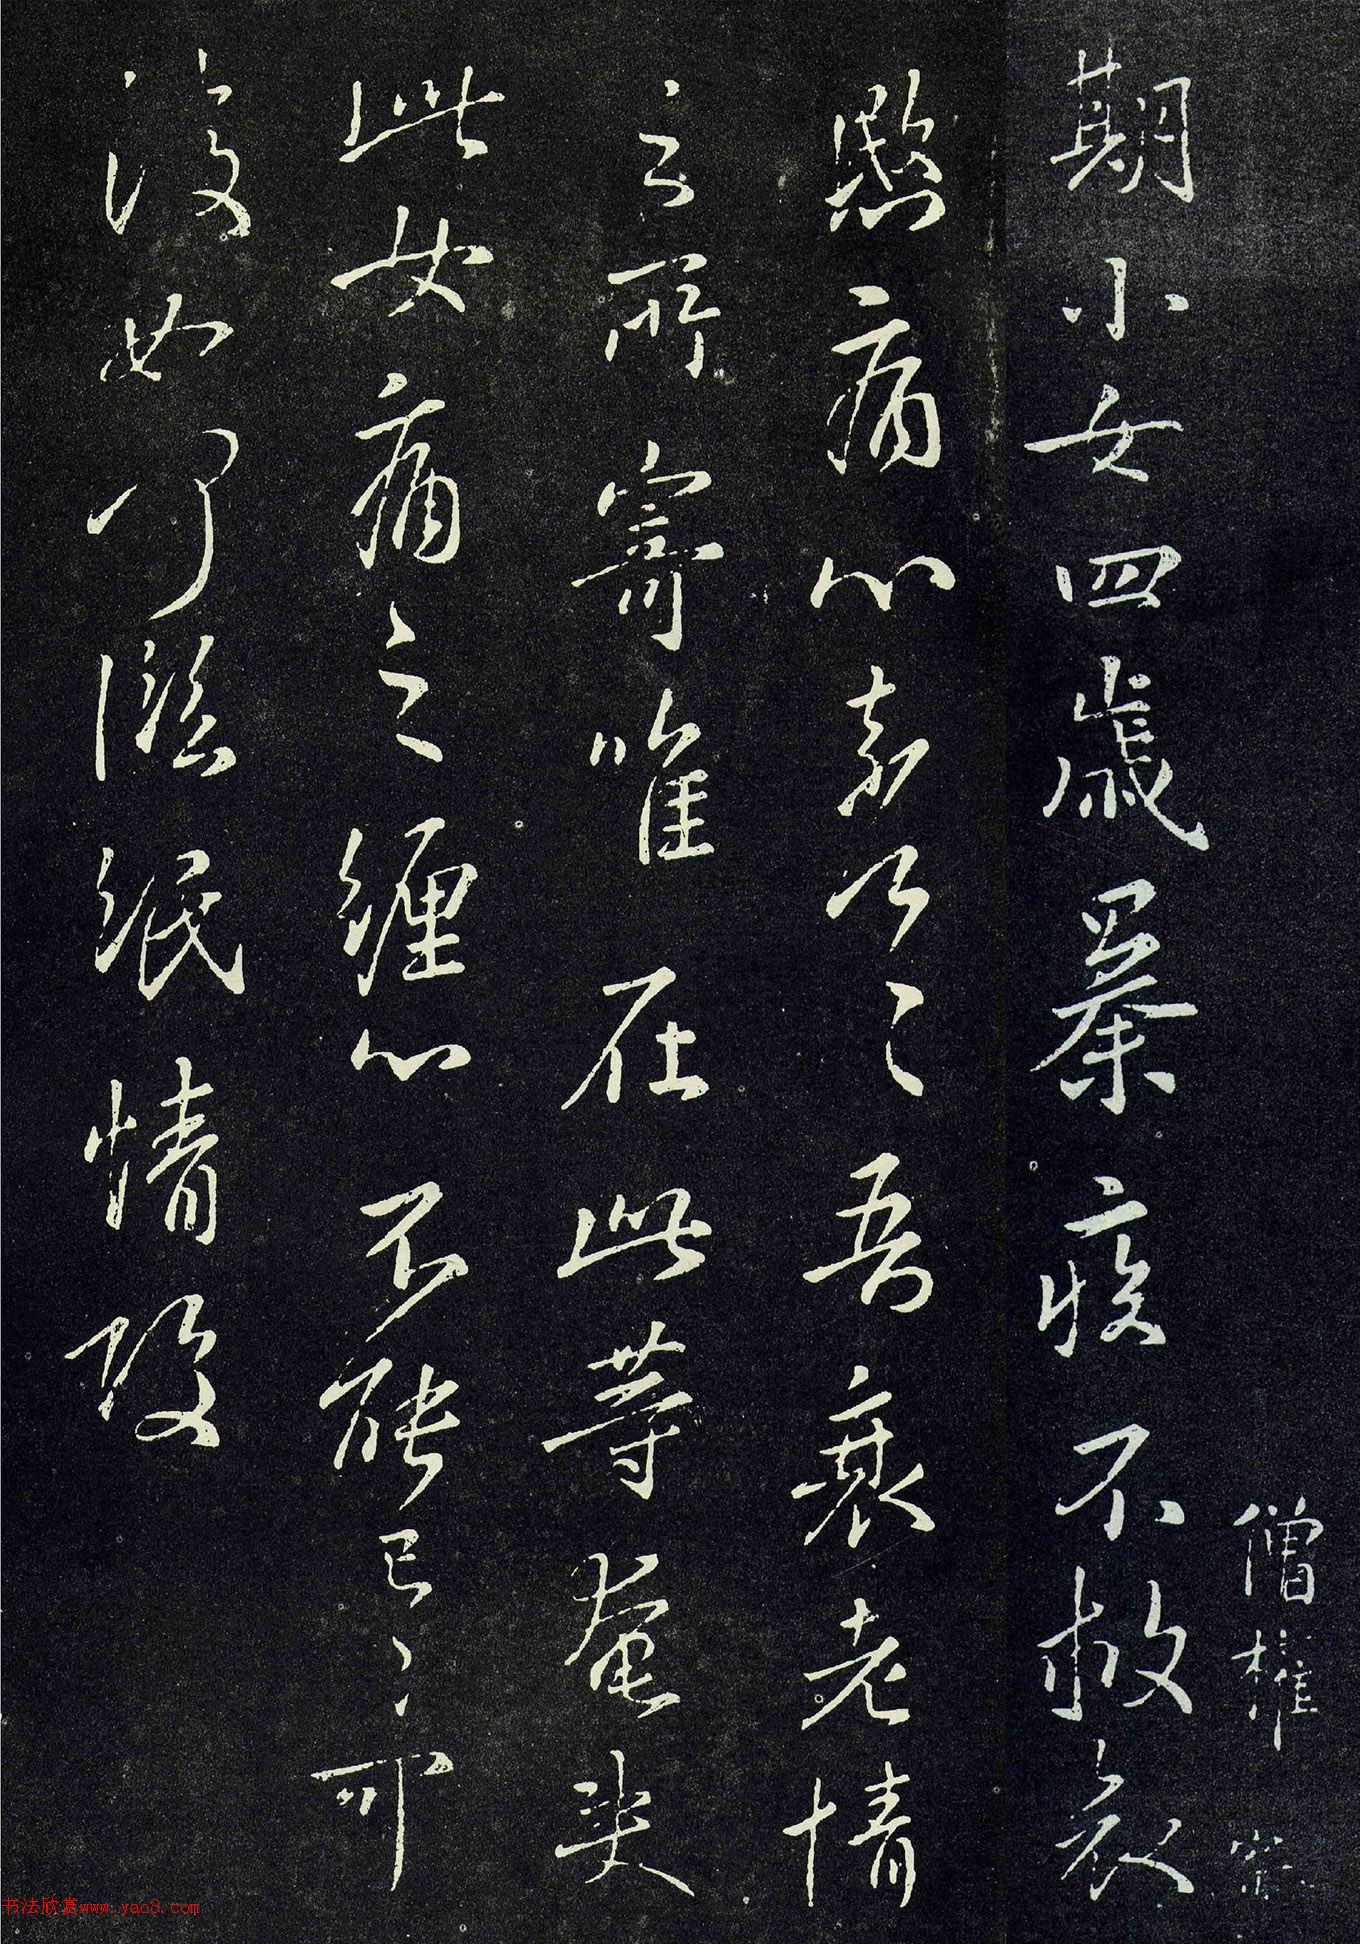 僧權
期小女四歲暴疾不救哀
愍痛心奈何〻吾衰老情
之所寄唯在此等奄失
此女痛之纏心不能已〻可
復如何臨紙情酸
书法欣赏www.yac8.com